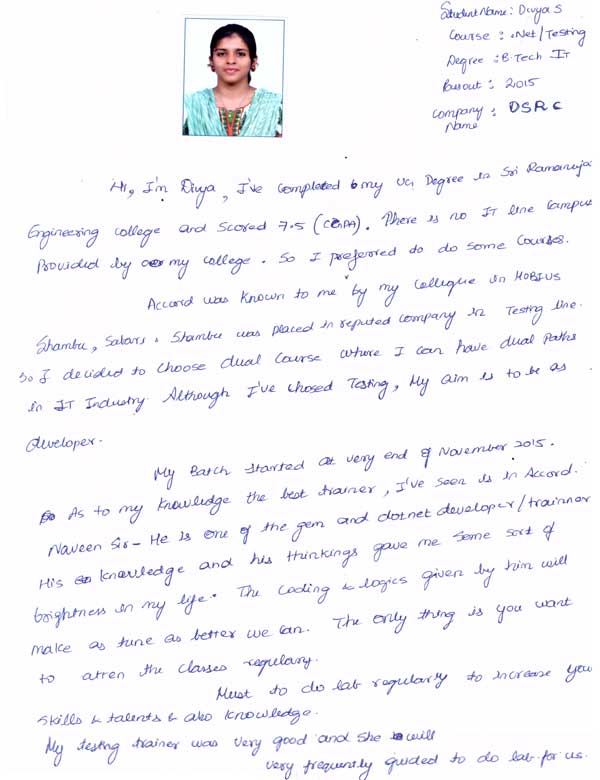 Student Name: Divya S
Course : .Net/Testing
Degree : B.Tech IT
Passout : 2015
Company : DSRC
Name
Hi, I'm Divya, I've completed my UG Degree in Sri Ramanujar
Engineering college and scored 7.5 (CGPA). There is no IT line campus
Provided by my college. So I preferred to do some Courses.
Accord was known to me by my collegue in MOBIUS
Shambu, Sabari. Shambu was placed in reputed company in Testing line.
So I decided to choose dual course where I can have dual Paths
in IT Industry. Although I've chosed Testing, My aim is to be as
developer.
My Batch started at very end of November 2015.
As to my knowledge the best trainer, I've seen is in Accord.
Naveen Sir - He is one of the gem and dotnet developer/trainner
His knowledge and his thinkings gave me some sort of
brightness in my life. The coding & logics given by him will
make as tune as better we can. The only thing is you want
to atten the classes regulary.
Must to do lab regularly to increase you
skills & talents & also knowledge.
My testing trainer was very good and she will
very frequently guided to do lab for us.